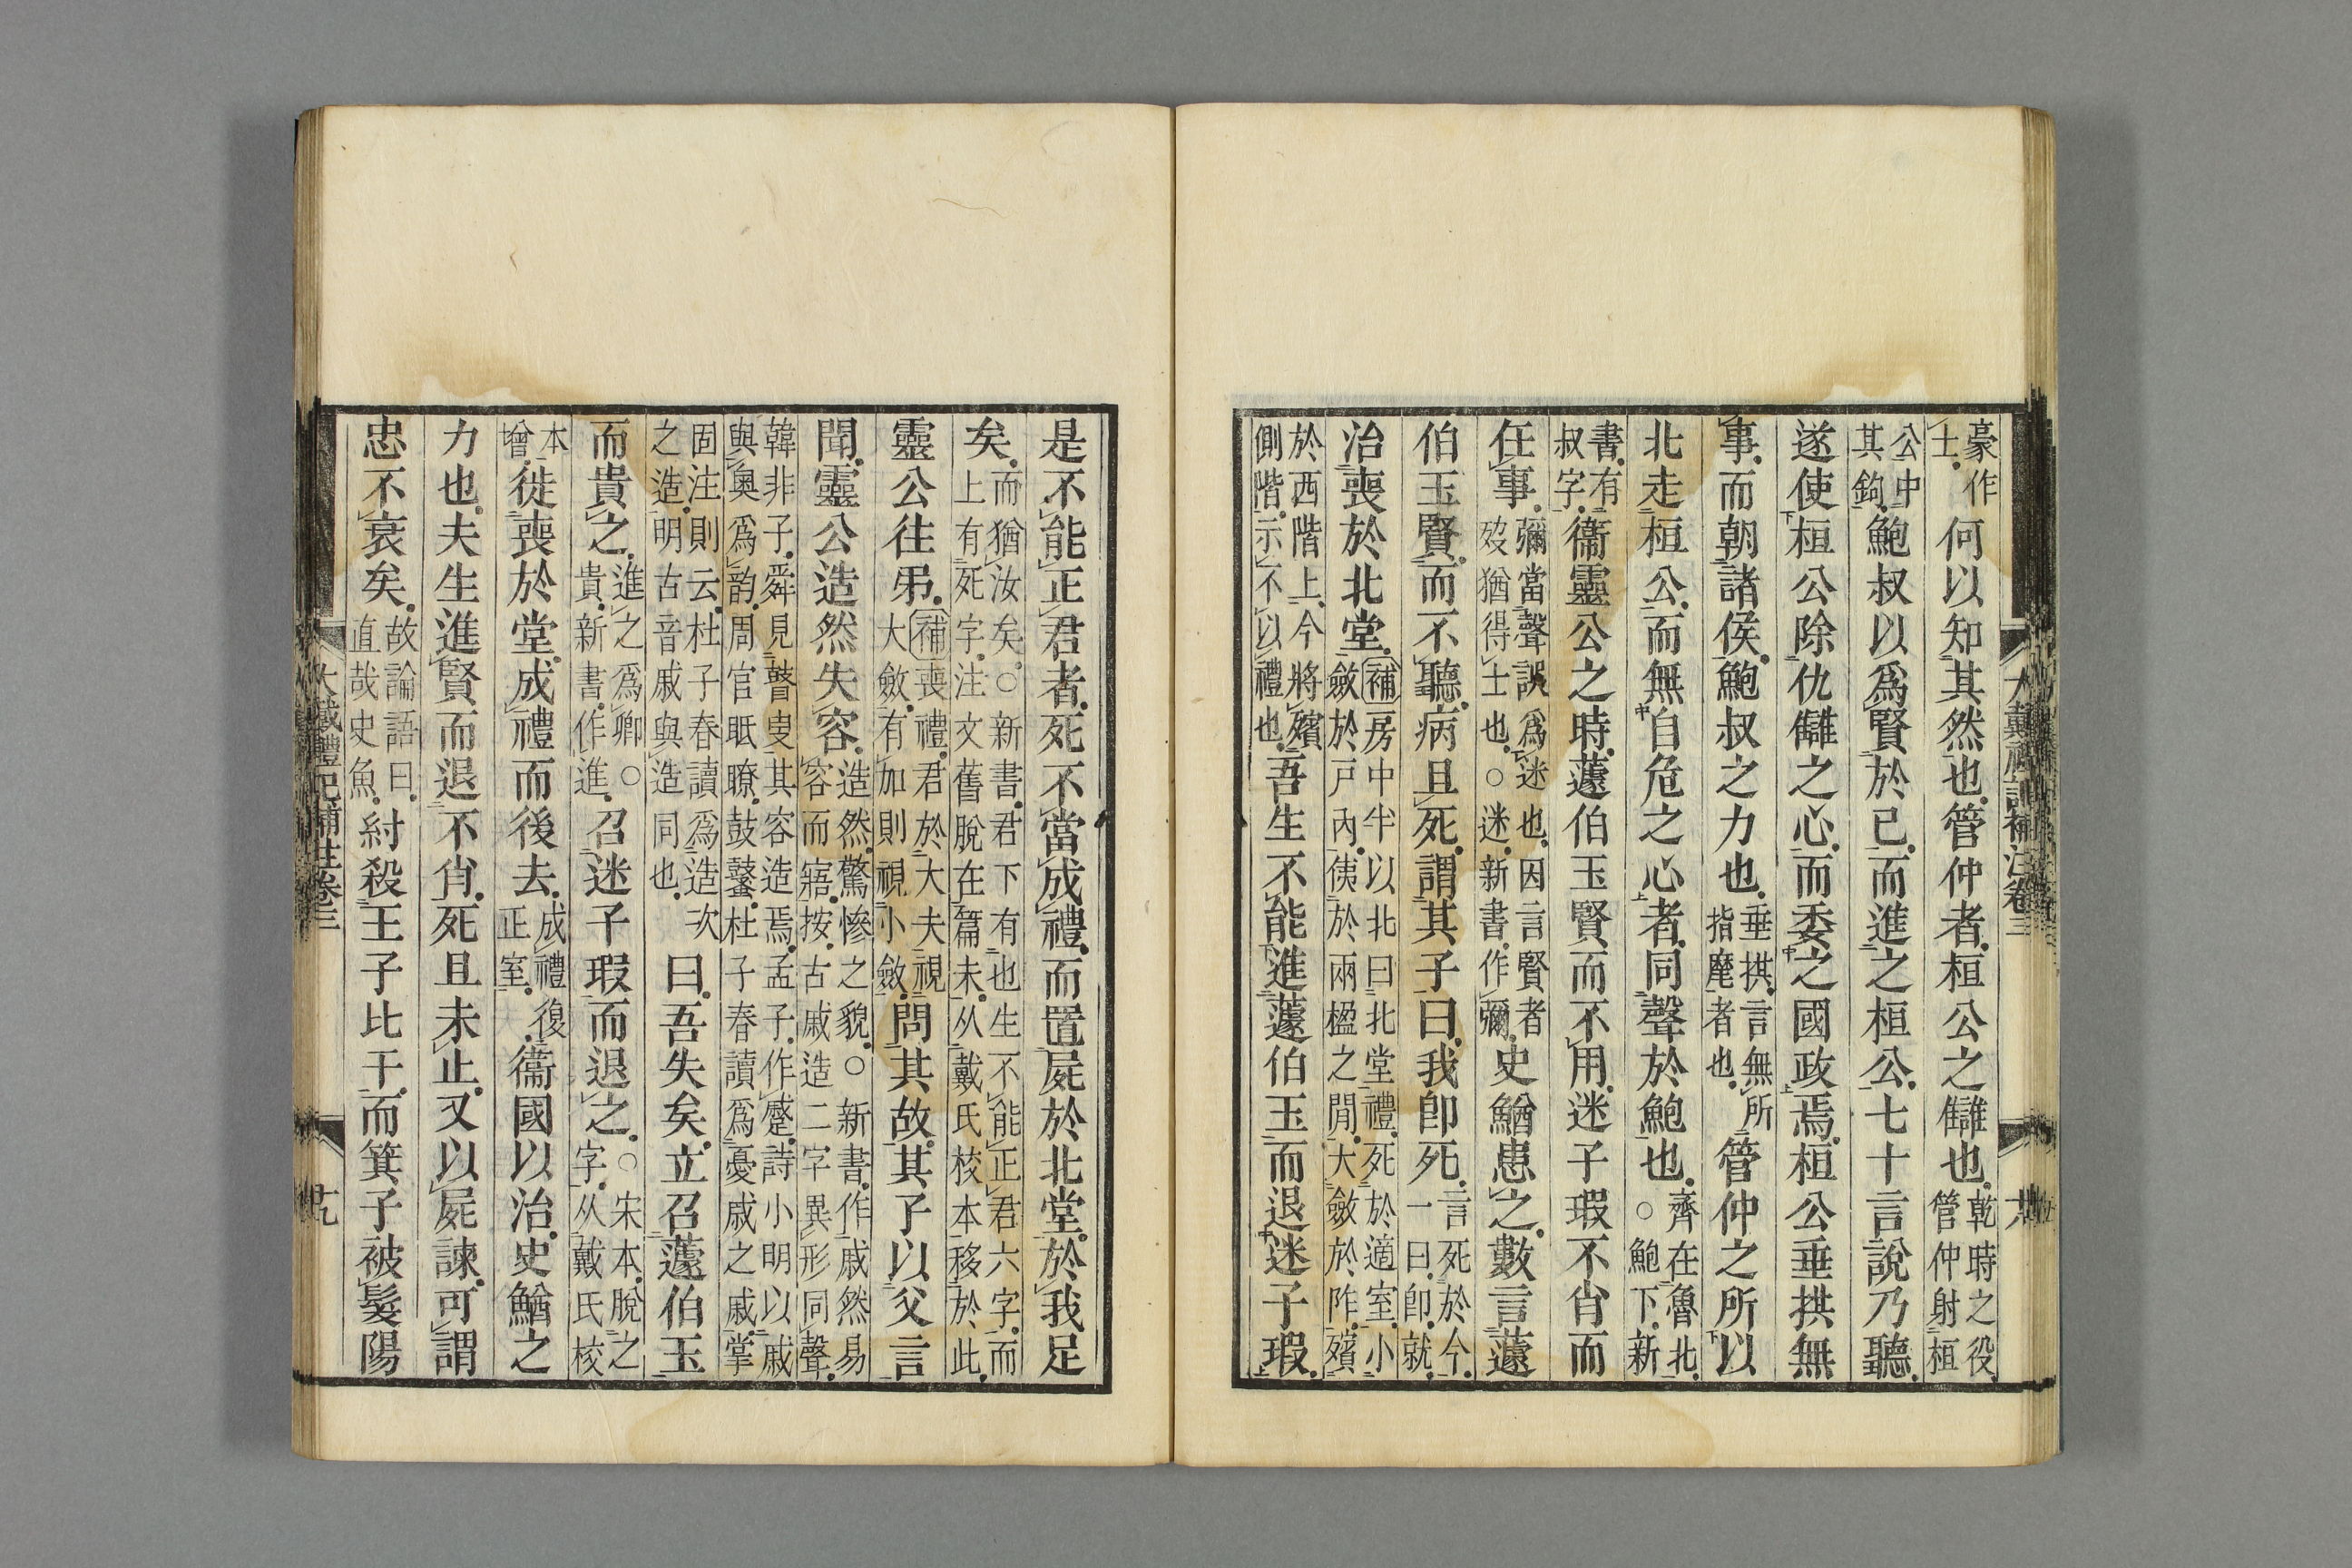 豪作士何以知其然也管仲者桓公之讎也乾時之役管仲射桓
公中其鉤鮑叔以爲賢於己而進之桓公七十言說乃聽
遂使桓公除仇讎之心而委之國政焉桓公垂拱無
事而朝諸侯鮑叔之力也垂拱言無所指麾者也管仲之所以
北走桓公而無自危之心者同聲於鮑也齊在魯北○鮑下新
書有叔字衞靈公之時蘧伯玉賢而不用迷子瑕不肖而
任事彌當聲誤爲迷也因言賢者歿猶得士也○迷新書作彌史鰌患之數言蘧
伯玉賢而不聽病且死謂其子曰我卽死言死於今一曰卽就
治喪於北堂補房中半以北曰北堂禮死於適室小斂於戸內侇於兩楹之閒大斂於阼殯
於西階上今將殯側階示不以禮也吾生不能進蘧伯玉而退迷子瑕
大戴禮記補注卷三
是不能正君者死不當成禮而置屍於北堂於我足
矣而猶汝矣○新書君下有也生不能正君六字而上有死字注文舊脫在篇末从戴氏校本移於此
靈公往弔補喪禮君於大夫視大斂有加則視小斂問其故其子以父言
聞靈公造然失容造然驚慘之貌○新書作戚然易容而寤按古戚造二字異形同聲
韓非子舜見瞽叟其容造焉孟子作蹙詩小明以戚與奧爲韵周官眡瞭鼓鼜杜子春讀爲憂戚之戚掌
固注則云杜子春讀爲造次之造明古音戚與造同也曰吾失矣立召蘧伯玉
而貴之進之爲卿○貴新書作進召迷子瑕而退之○宋本脫之字从戴氏校
本增徙喪於堂成禮而後去成禮復正室衞國以治史鰌之
力也夫生進賢而退不肖死且未止又以屍諫可謂
忠不衰矣故論語曰直哉史魚紂殺王子比干而箕子被髮陽
大戴禮記補注卷三